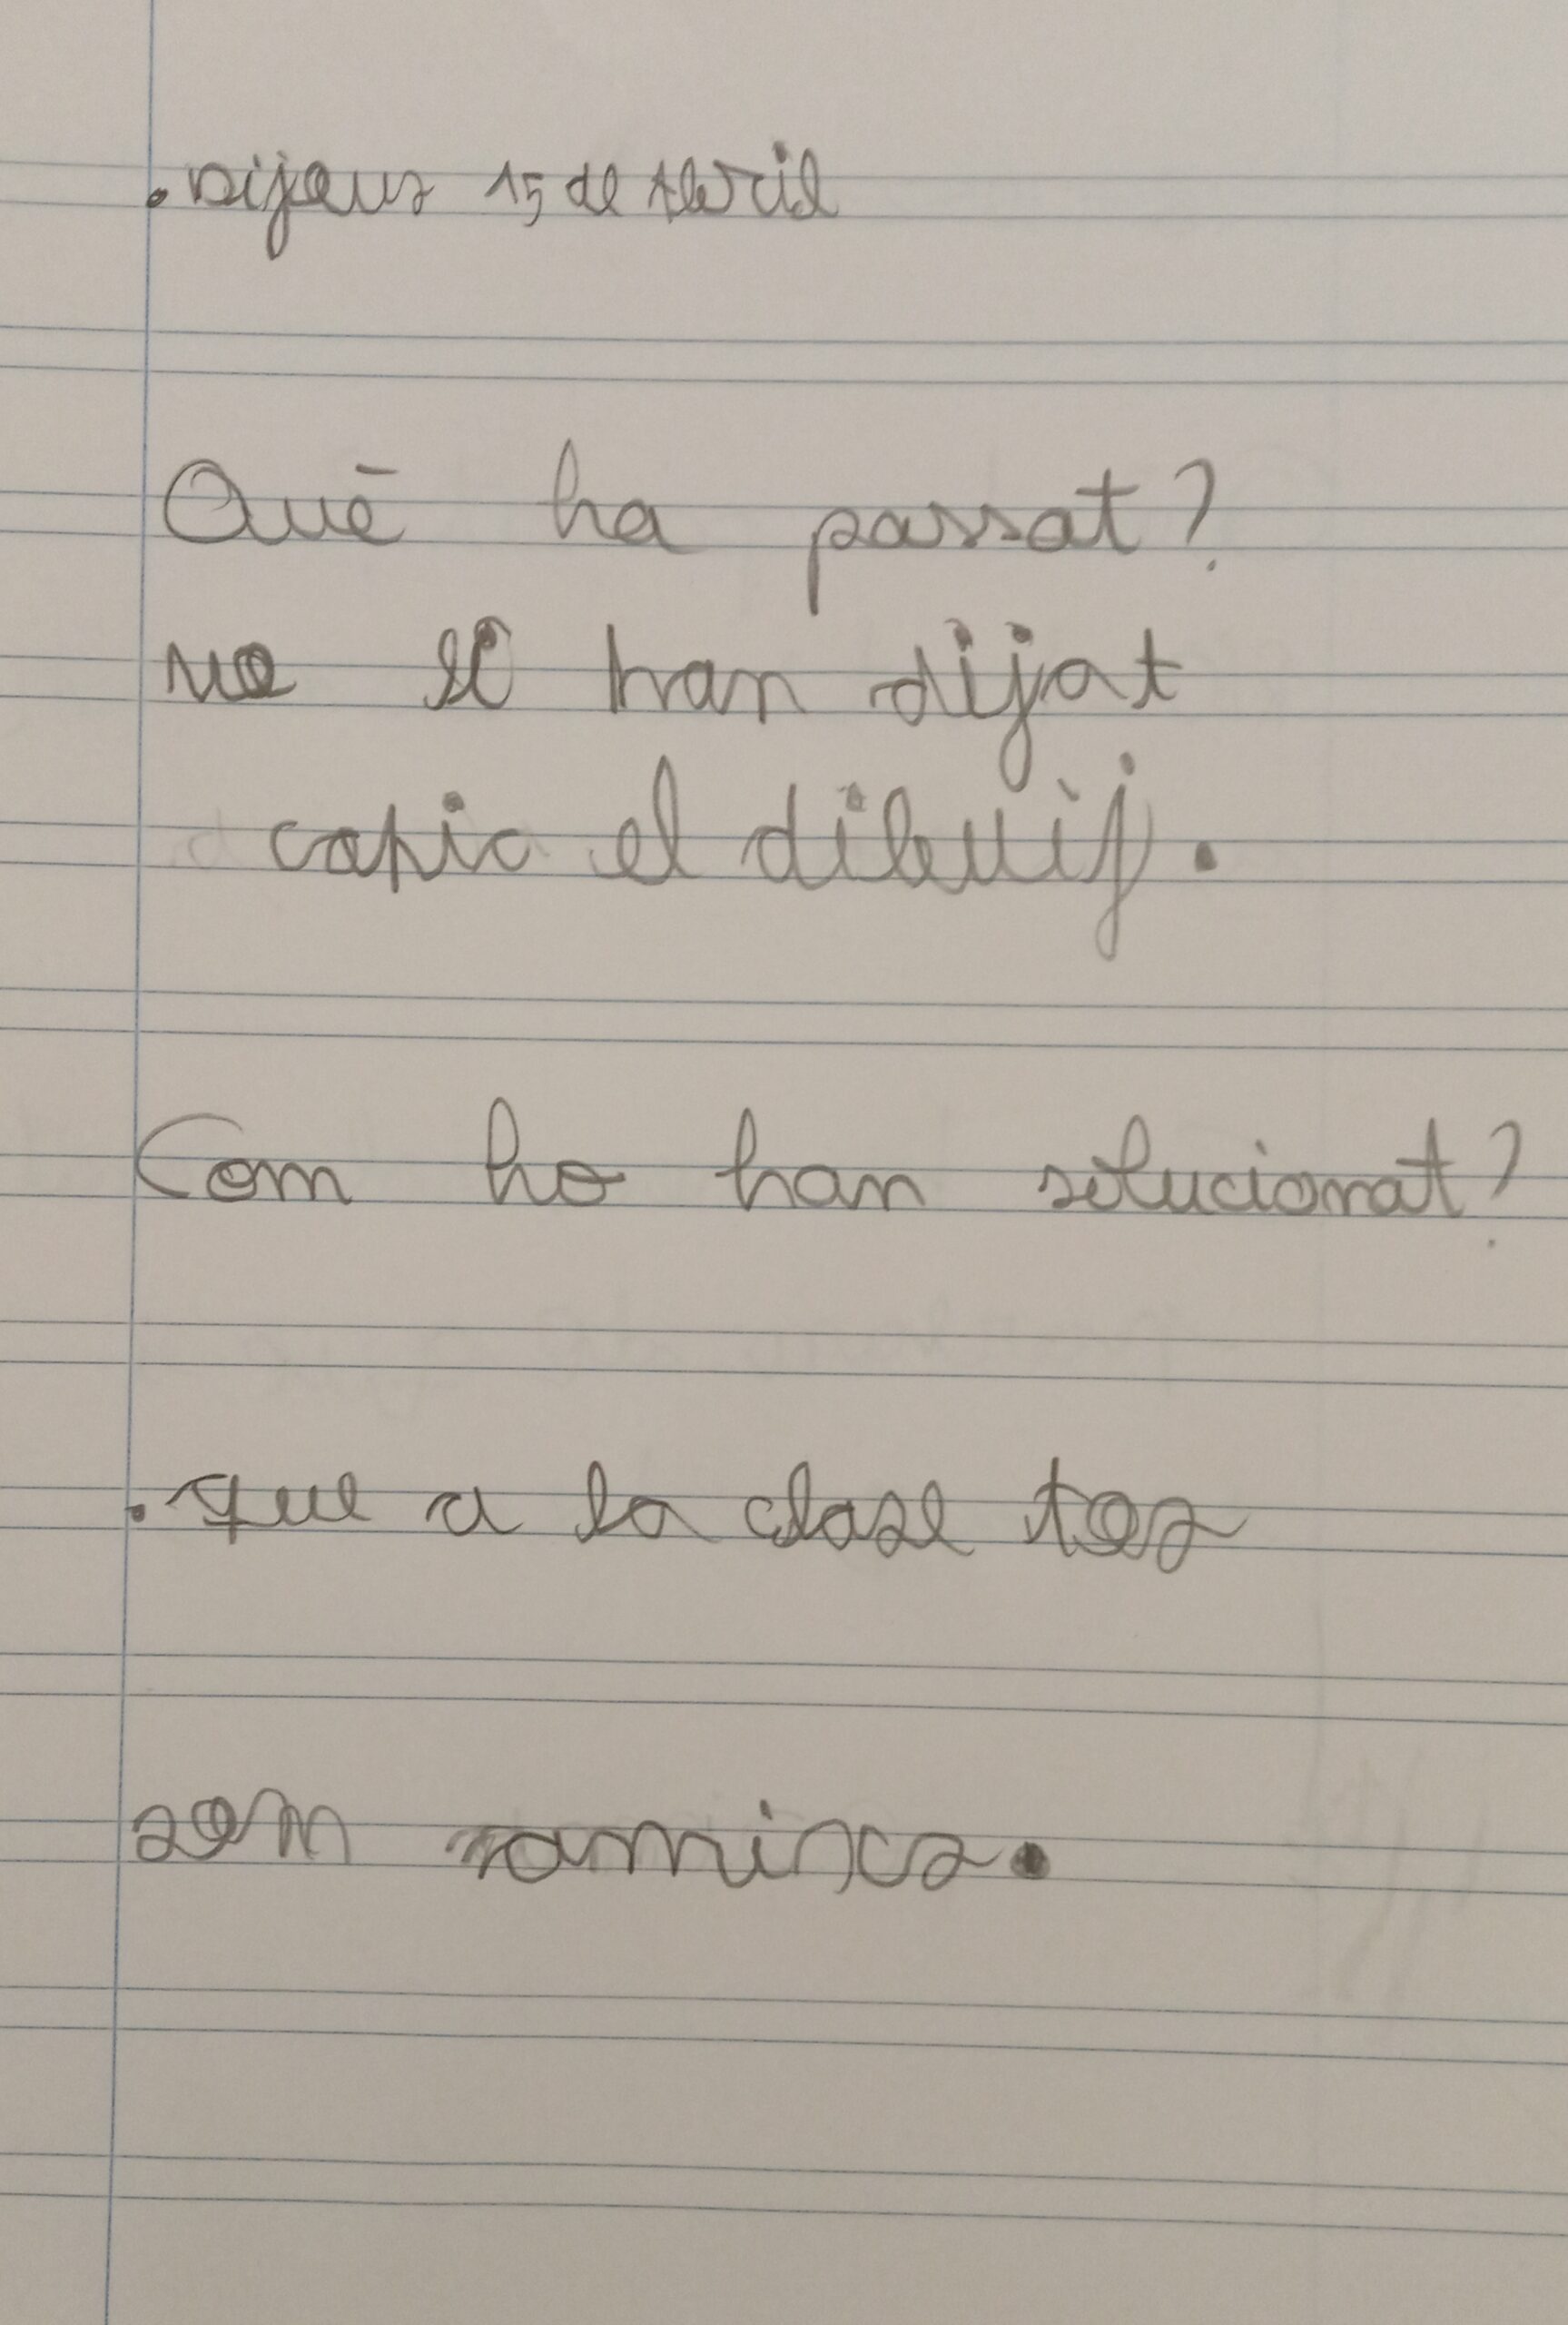 . Dijous 15 de Abril
Què ha passat?
no li han dijat
copio el dibuij.
Com ho han solucionat?
. que a la clase tos
som amixs.